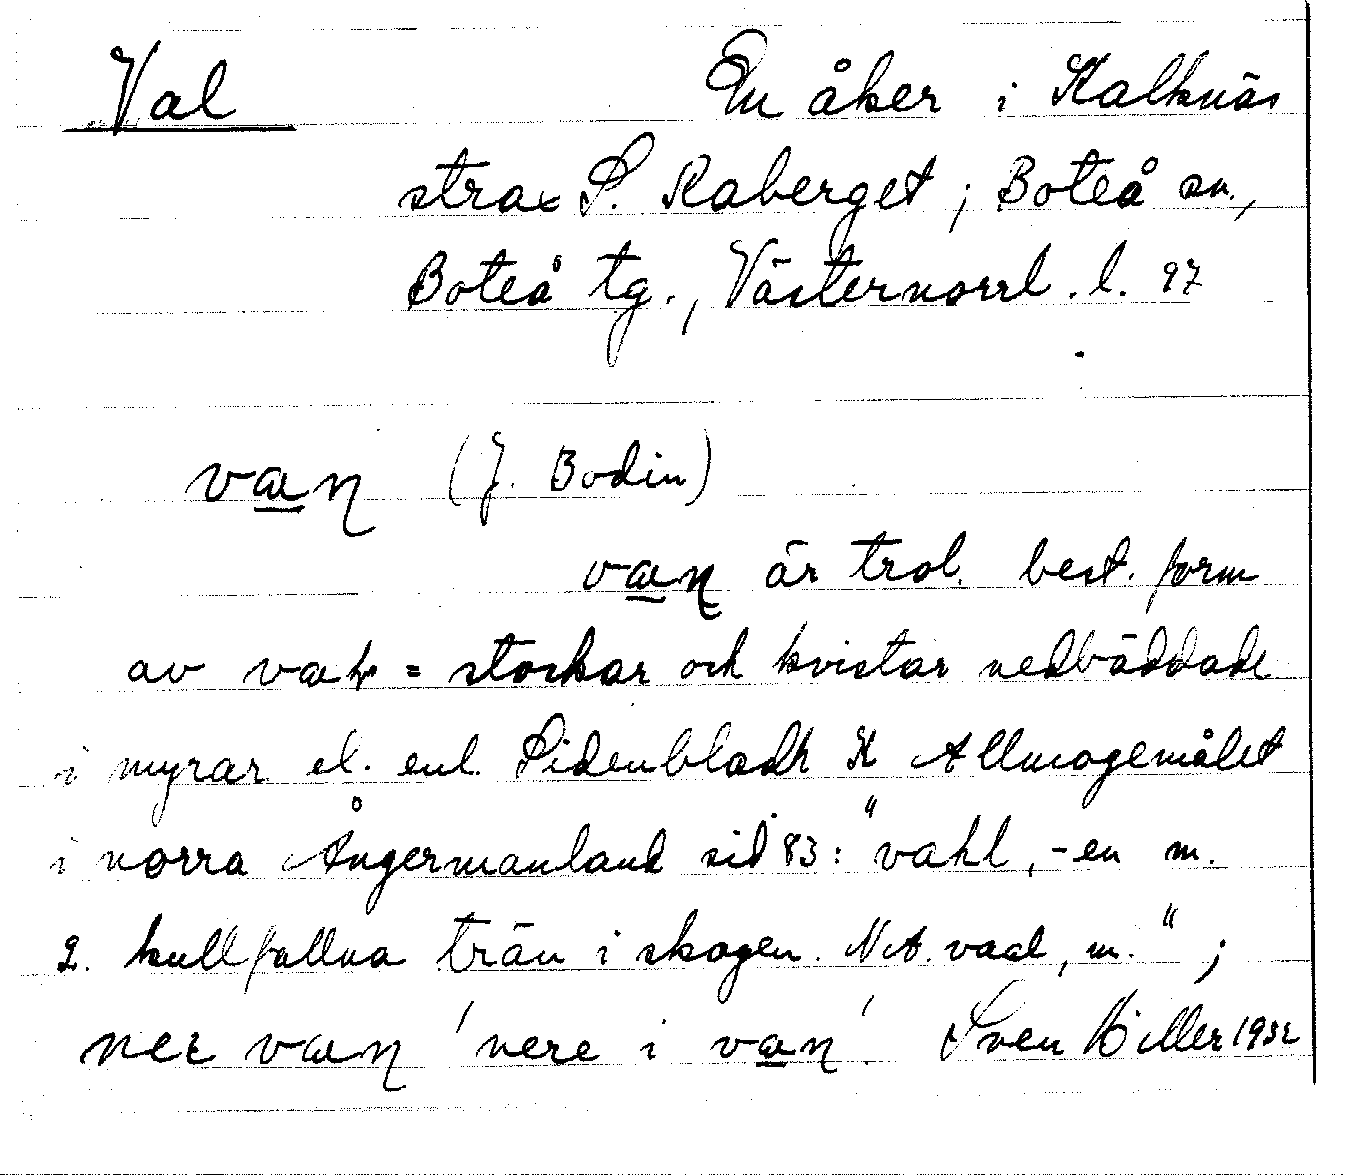 Val En åker i Kalknäs
strax S. Raberget; Boteå sn.,
Boteå tg., Västernorrl. l. 97
væɳ (J. Bodin)
væɳ är trol. best. form
av = stockar och kvistar nedbäddade
i myrar el. enl. Sidenbladh K Allmogemålet
i norra Ångermanland sid 83: "vahl, -en m.
2. kullfallna trän i skogen. N.A. vaal, m.";
ner væɳ 'nere i væɳ'. Sven 1932